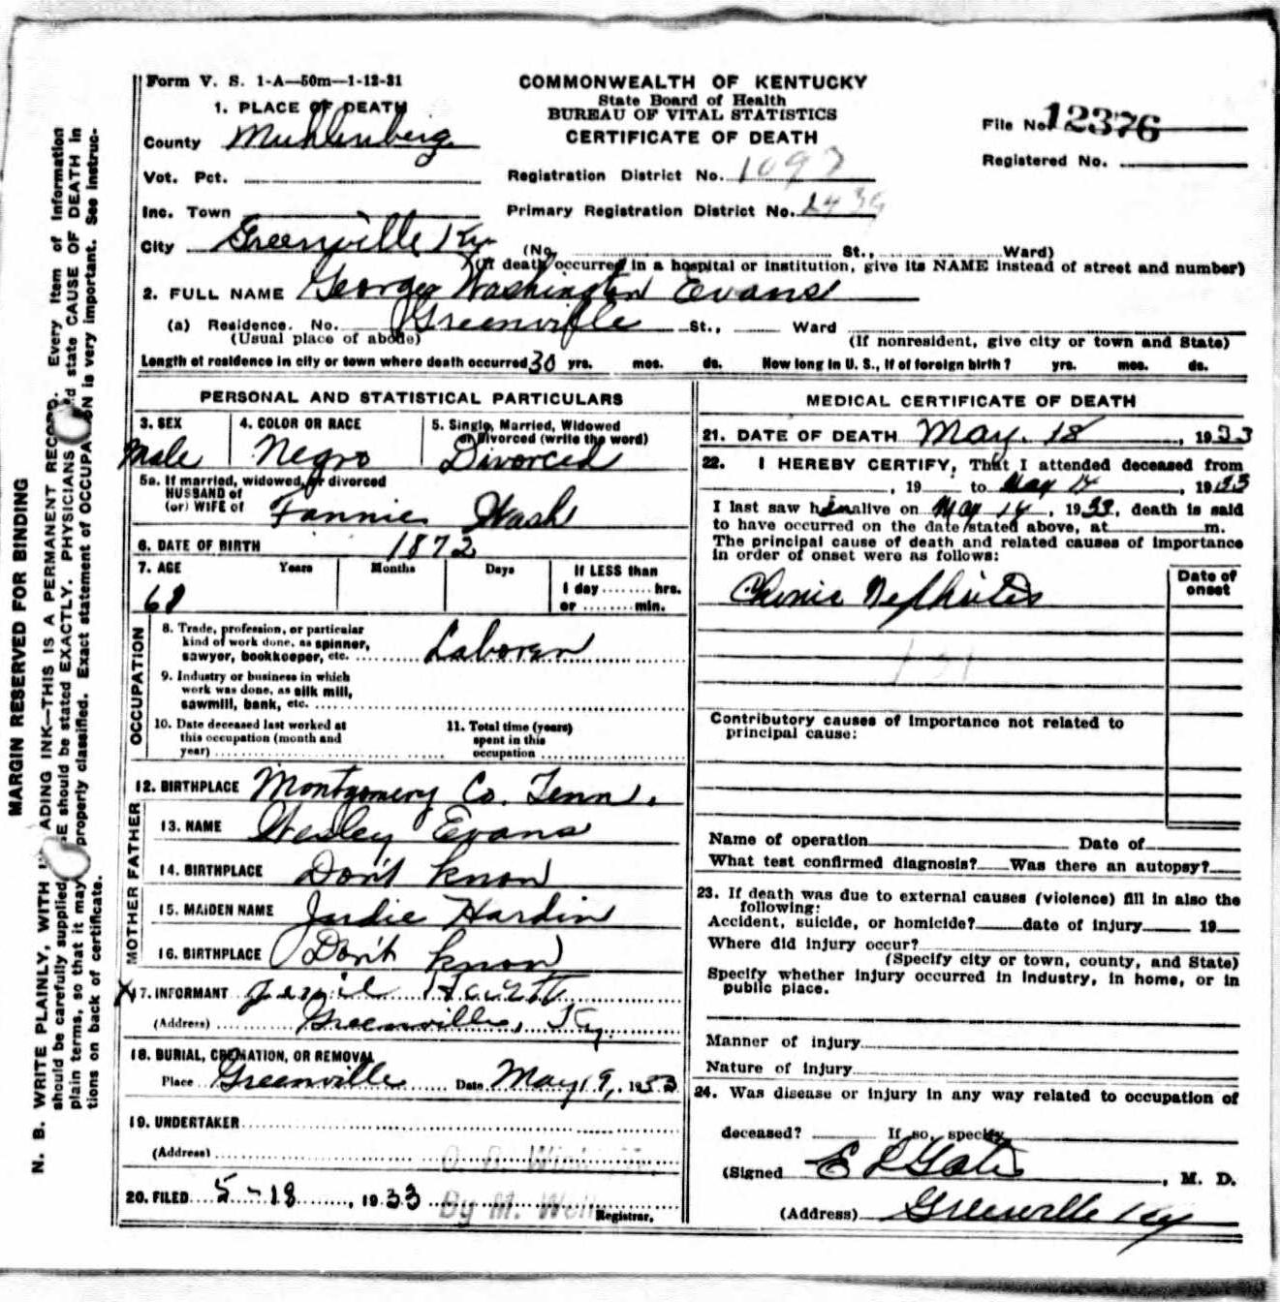 Form V. S. 1-A—50m—1-12-31
COMMONWEALTH OF KENTUCKY
State Board of Health
BUREAU OF VITAL STATISTICS
CERTIFICATE OF DEATH
File No. 12376
Registered No.
1. PLACE OF DEATH
County Muhlenberg
Vot. Pct.
Registration District No. 1097
Inc. Town
Primary Registration District No.
City Greenville Ky
(No. St., Ward)
(If death occurred in a hospital or institution, give its NAME instead of street and number)
2. FULL NAME George Washington Evans
(a) Residence. No. Greenville St., Ward
(Usual place of abode)
(If nonresident, give city or town and State)
Length of residence in city or town where death occurred 30 yrs. mos. ds. How long in U. S., if of foreign birth? yrs. mos. ds.
PERSONAL AND STATISTICAL PARTICULARS
3. SEX
Male
4. COLOR OR RACE
Negro
5. Single, Married, Widowed
or Divorced (write the word)
Divorced
5a. If married, widowed, or divorced
HUSBAND of
(or) WIFE of Fannie Wash
6. DATE OF BIRTH 1872
7. AGE Years Months Days If LESS than
1 day hrs.
or min.
OCCUPATION
8. Trade, profession, or particular
kind of work done, as spinner,
sawyer, bookkeeper, etc. Laborer
9. Industry or business in which
work was done, as silk mill,
sawmill, bank, etc.
10. Date deceased last worked at
this occupation (month and
year)
11. Total time (years)
spent in this
occupation
12. BIRTHPLACE Montgomery Co. Tenn.
FATHER
13. NAME Wesley Evans
14. BIRTHPLACE Don't know
MOTHER
15. MAIDEN NAME Hardin
16. BIRTHPLACE Don't know
X 17. INFORMANT
(Address) Greenville, Ky.
18. BURIAL, CREMATION, OR REMOVAL
Place Greenville Date May 19, 1933
19. UNDERTAKER
(Address)
20. FILED 5-18, 1933
By M.
Registrar.
MEDICAL CERTIFICATE OF DEATH
21. DATE OF DEATH May. 18, 1933
22. I HEREBY CERTIFY, That I attended deceased from
, 19 to May 14, 1933
I last saw him alive on May 14, 1933, death is said
to have occurred on the date stated above, at m.
The principal cause of death and related causes of importance
in order of onset were as follows:
Date of
onset
Chronic Nephritis
131
Contributory causes of importance not related to
principal cause:
Name of operation Date of
What test confirmed diagnosis? Was there an autopsy?
23. If death was due to external causes (violence) fill in also the
following:
Accident, suicide, or homicide? date of injury 19
Where did injury occur?
(Specify city or town, county, and State)
Specify whether injury occurred in industry, in home, or in
public place.
Manner of injury
Nature of injury
24. Was disease or injury in any way related to occupation of
deceased? If so, specify
(Signed E L Gates, M. D.
(Address) Greenville Ky
MARGIN RESERVED FOR BINDING
N. B. WRITE PLAINLY, WITH ADING INK—THIS IS A PERMANENT RECORD. Every item of information
should be carefully supplied. E should be stated EXACTLY. PHYSICIANS d state CAUSE OF DEATH in
plain terms, so that it may properly classified. Exact statement of OCCUPA ON is very important. See instruc-
tions on back of certificate.